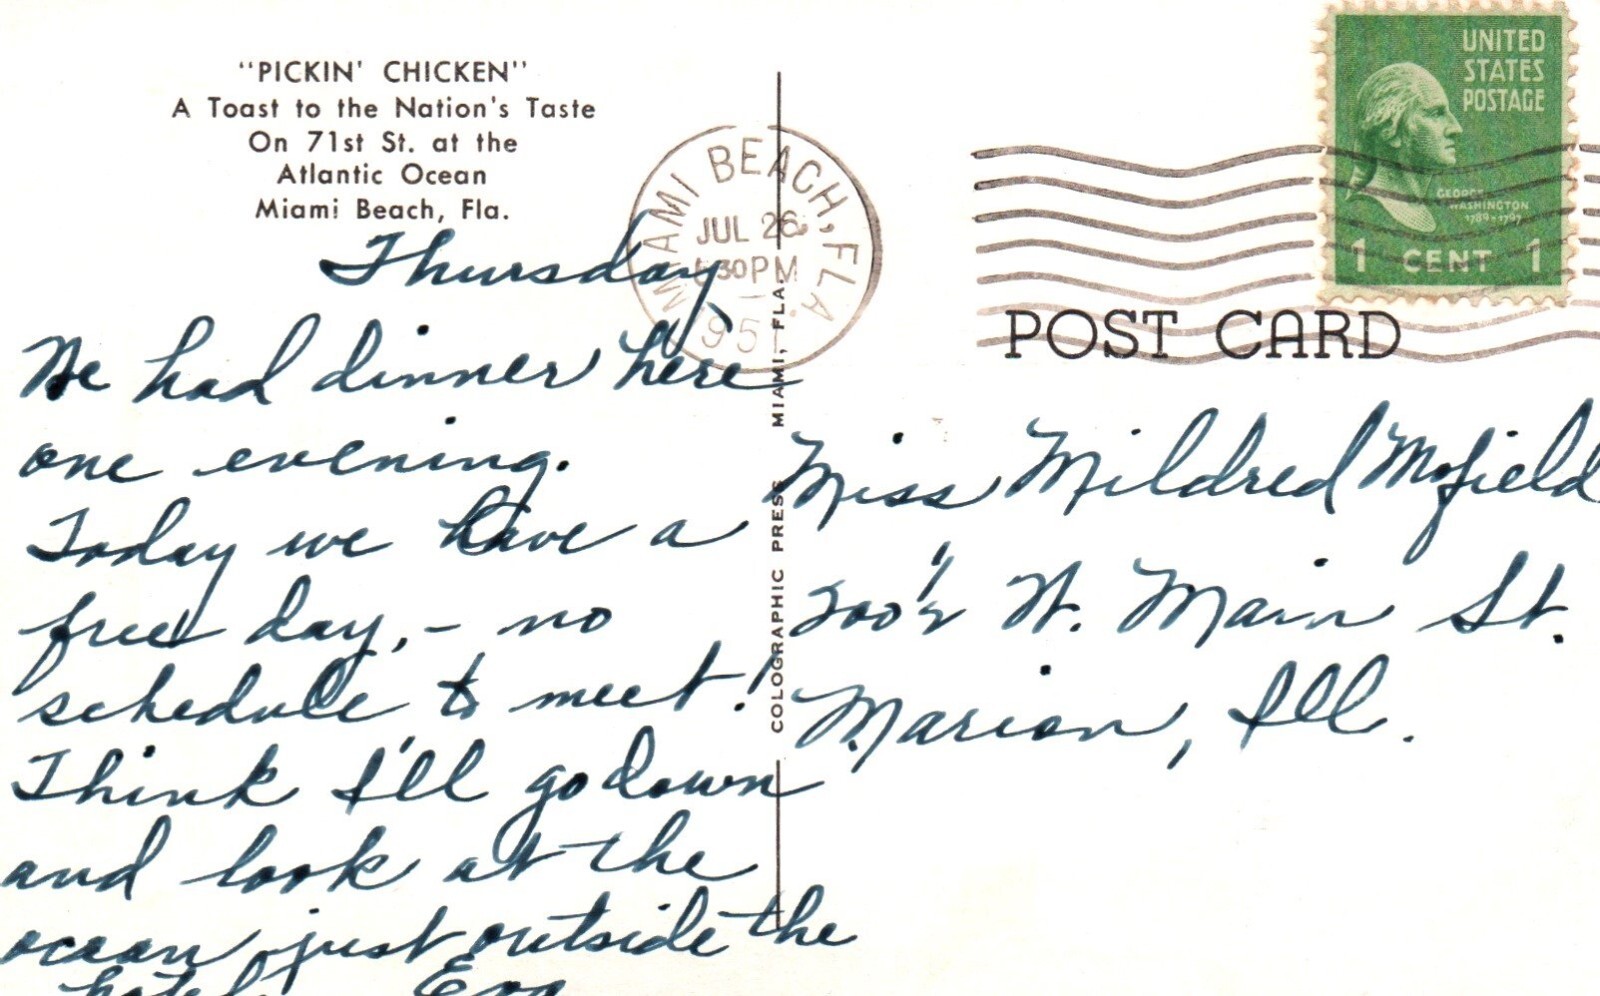 "PICKIN' CHICKEN"
A Toast to the Nation's Taste
On 71st St. at the
Atlantic Ocean
Miami Beach, Fla.
Thursday
We had dinner here
one evening.
Today we have a
free day, - no
schedule to meet!
Think I'll go down
and look at the
ocean just outside the
hotel. Eva
COLOGRAPHIC PRESS MIAMI, FLA.
MIAMI BEACH, FLA.
JUL 26
5 30 PM
1951
UNITED
STATES
POSTAGE
GEORGE
WASHINGTON
1789-1797
1 CENT 1
POST CARD
Miss Mildred
200 1/2 W. Main St.
Marion, Ill.